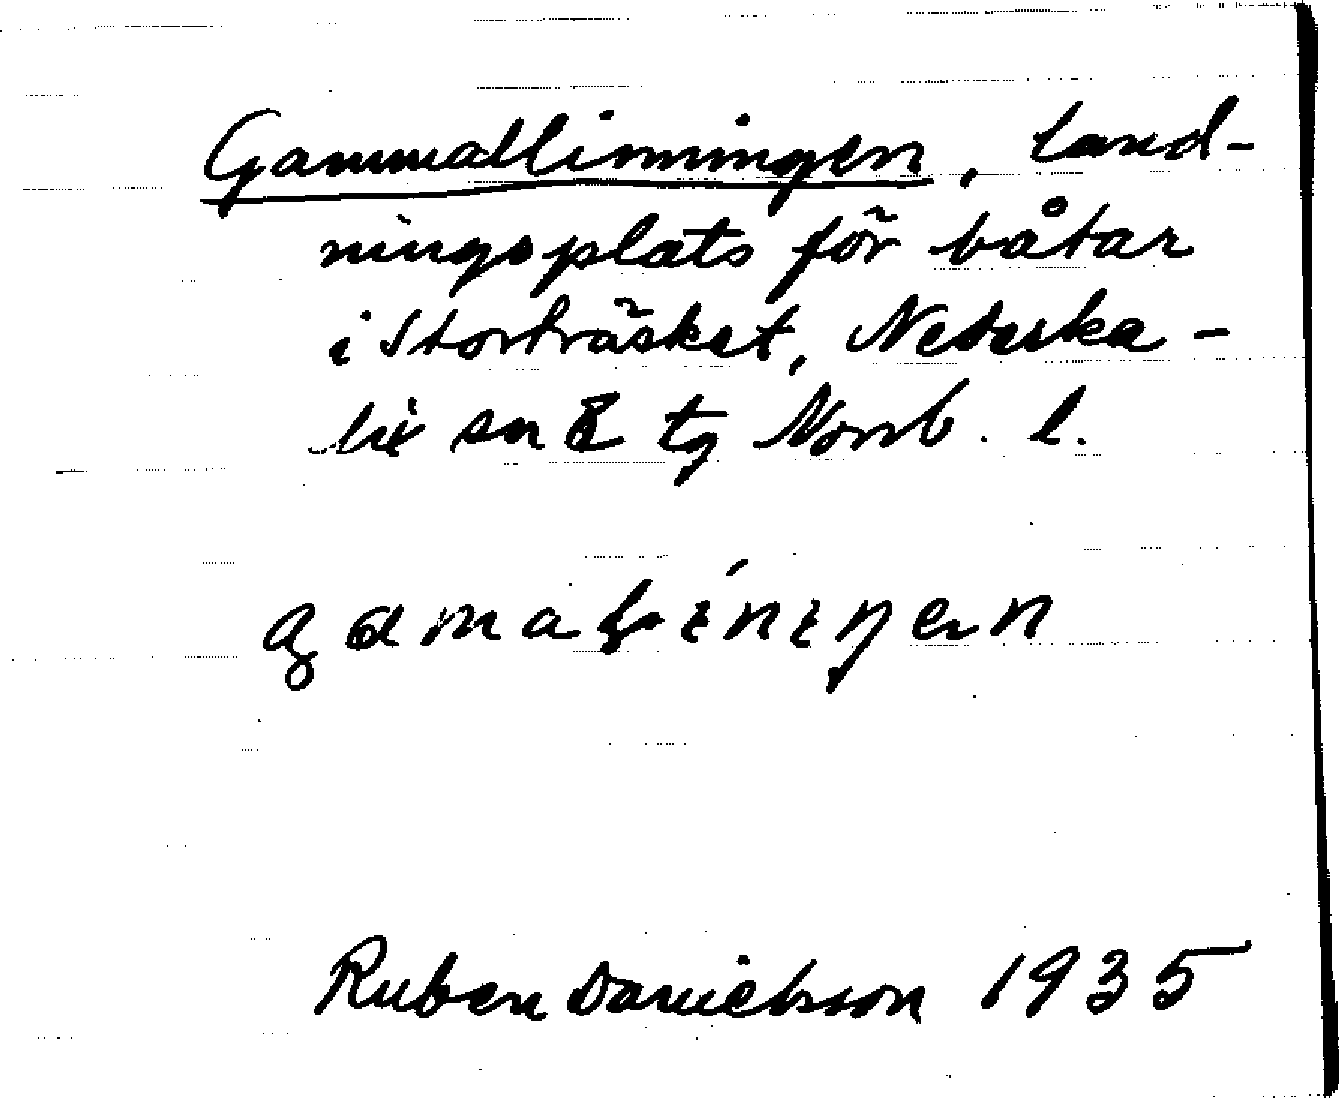 Gammallinningen, land-
ningsplats för båtar
i Storträsket, Nederka-
lix sn & tg Norrb. l.
Ruben Danielsson 1935